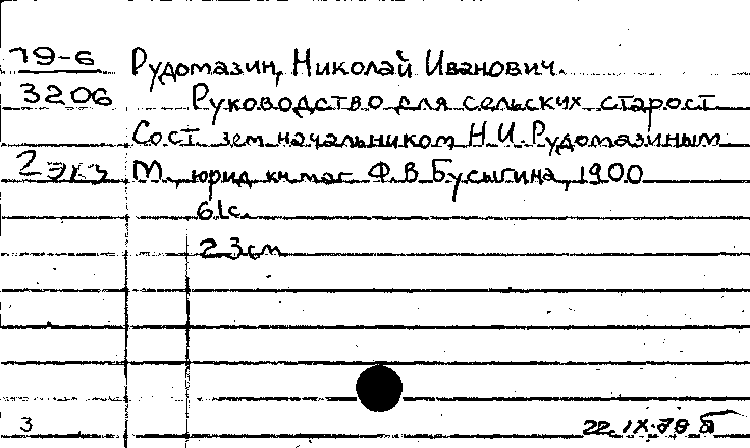 79-6 Рудомазин, Николай Иванович.
3206 Руководство для сельских старост
Сост. зем.начальником Н.И.Рудомазиным
2 экз М., юрид.кн.маг. Ф.В.Бусыгина, 1900
61с.
23см
3 22.IX.79